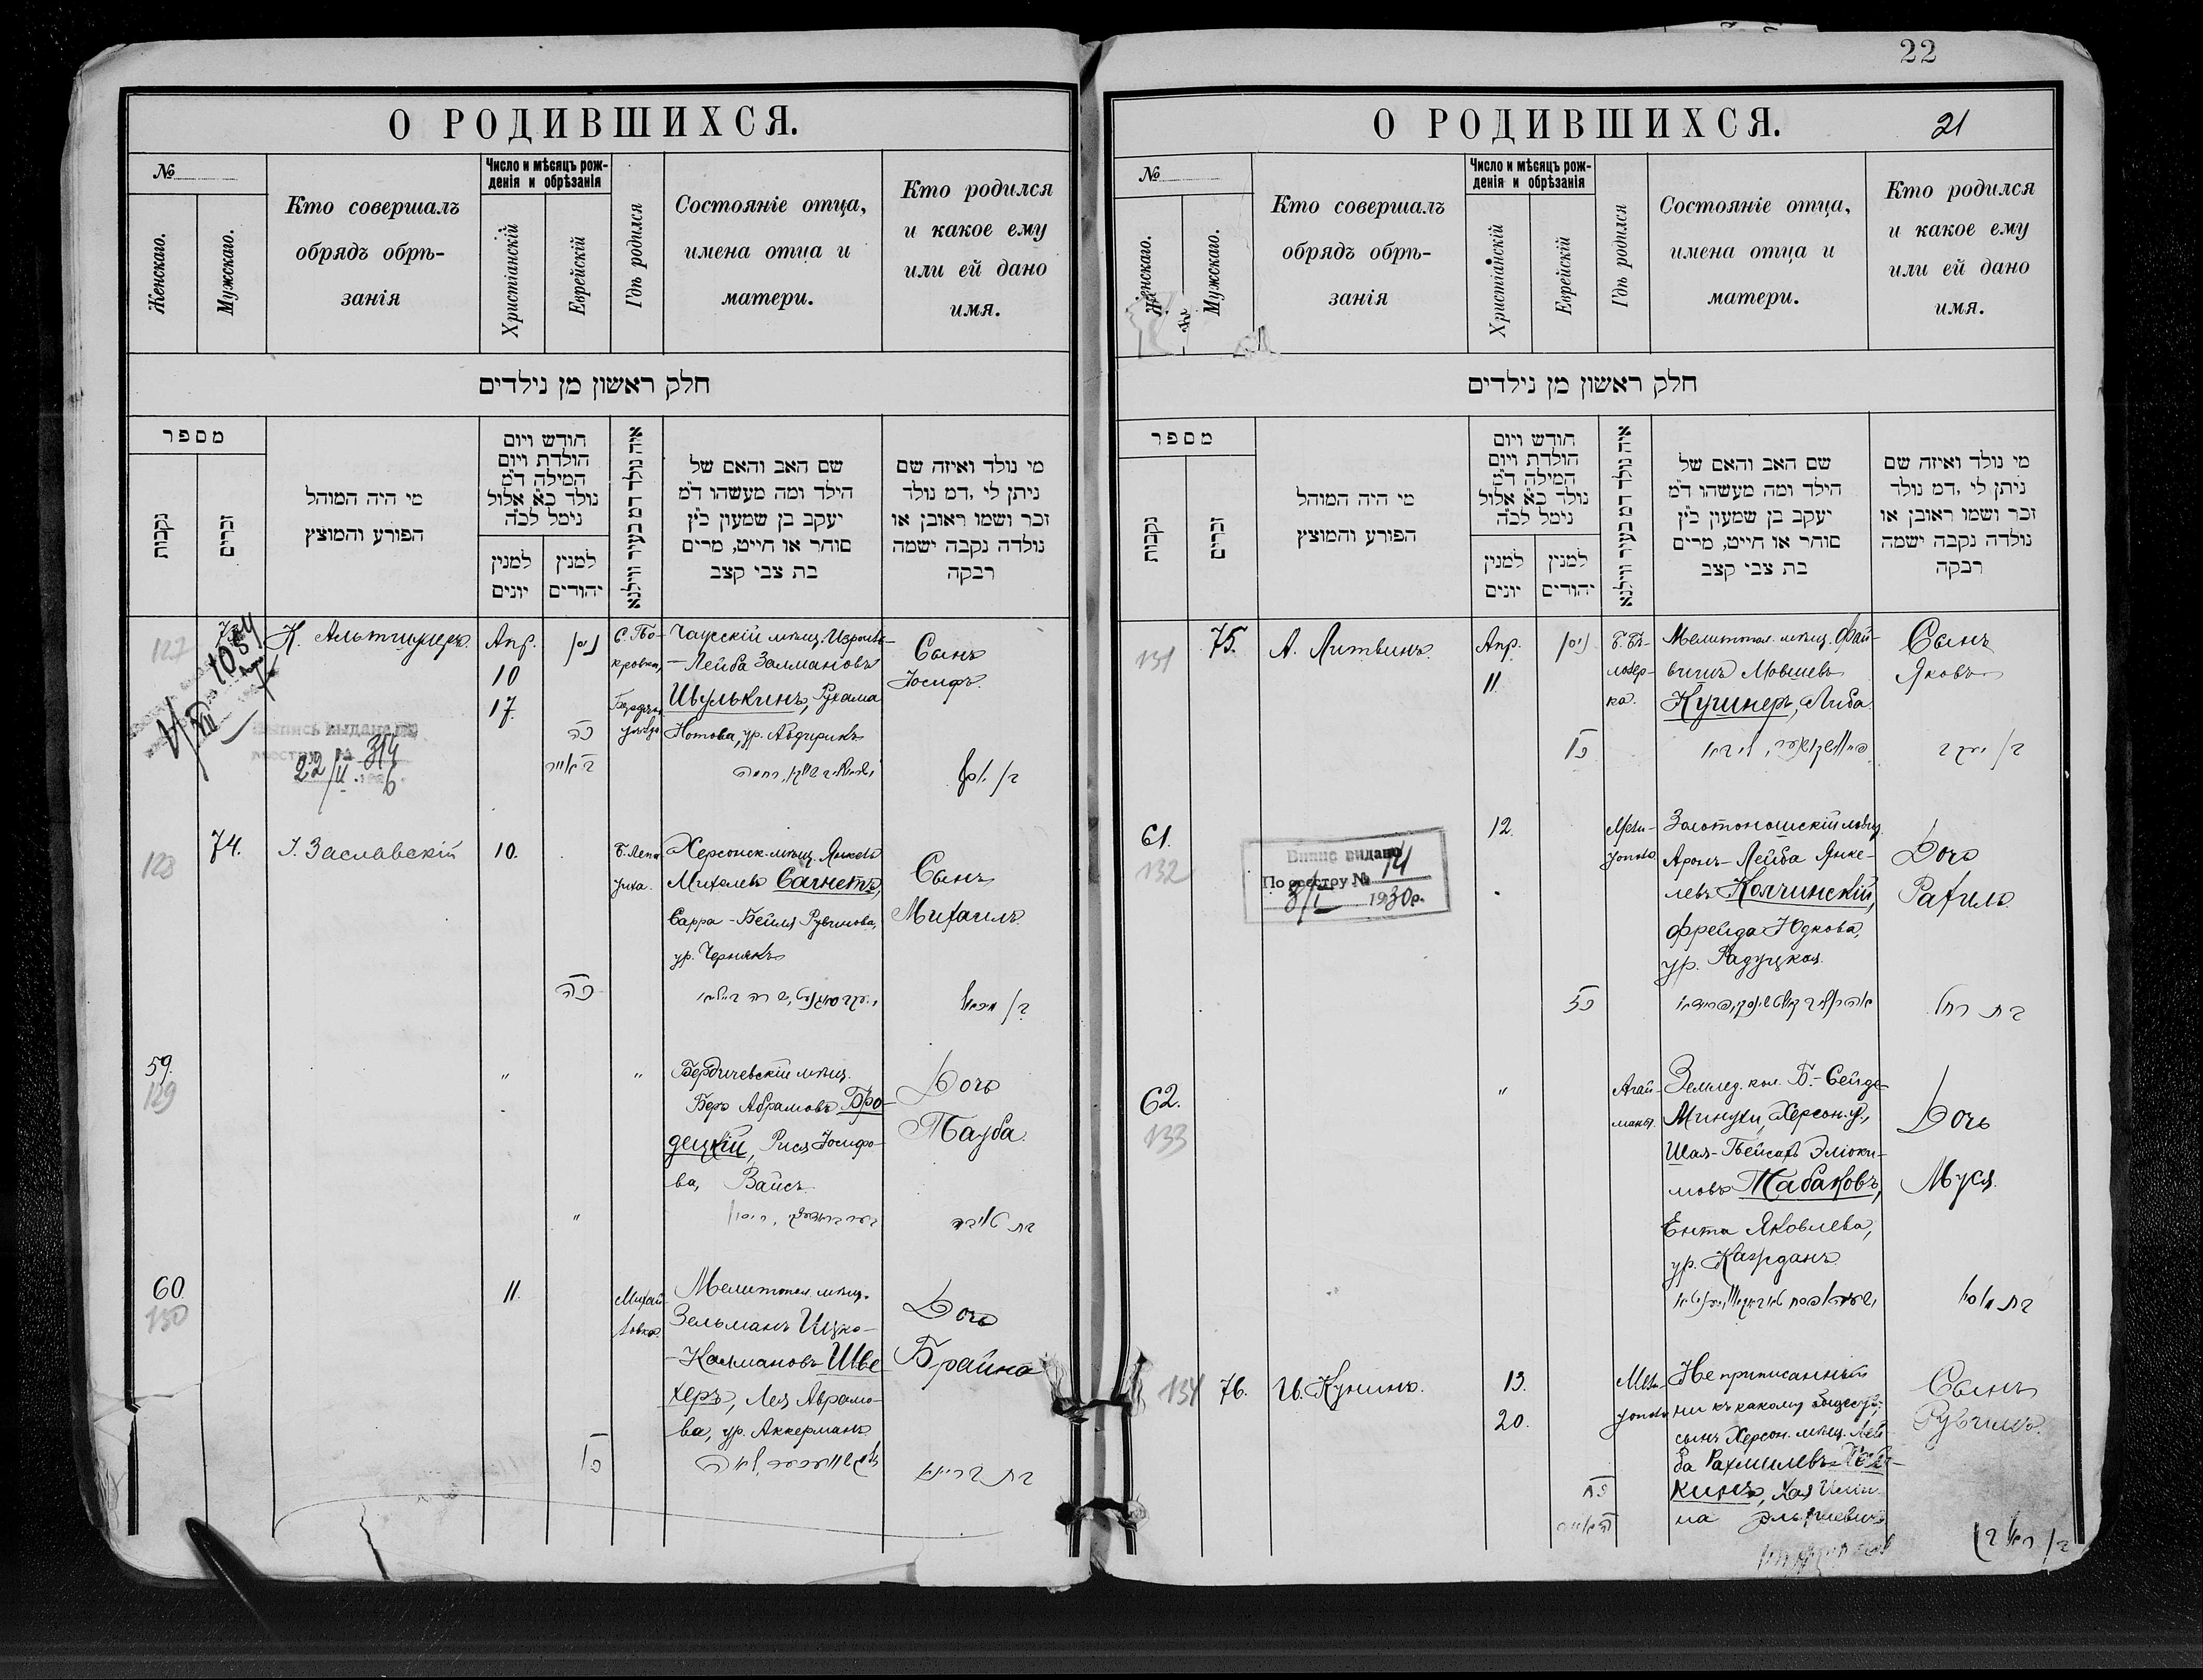 О РОДИВШИХСЯ.
№
Женскаго.
Мужскаго.
Кто совершалъ
обрядъ обрѣ-
занія
Число и мѣсяцъ рож-
денія и обрѣзанія
Христіанскій
Еврейскій
Гдѣ родился
Состояніе отца,
имена отца и
матери.
Кто родился
и какое ему
или ей дано
имя.
חלק ראשון מן נילדים
מספר
נקבות
זכרים
מי היה המוהל
הפורע והמוצץ
חודש ויום
הולדת ויום
המילה ד״מ
נולד כ״א אלול
נימל לכ״ה
למנין
יונים
למנין
יהודים
איה נולד דמ בעיר ווילנא
שם האב והאם של
הילד ומה מעשהו ד״מ
יעקב בן שמעון כ״ץ
סוחר או חייט, מרים
בת צבי קצב
מי נולד ואיזה שם
ניתן לי, דמ נולד
זכר ושמו ראובן או
נולדה נקבה ישמה
רבקה
127
73.
1084
Апр.
10
17.
ניסן
כה
с. По-
кровка,
Чаусскій мѣщ. Изроиль-
-Лейба Залмановъ
Шулькинъ, Рухама
Нотова, ур.
Сынъ
Іосифъ.
בן יוסף
Выпись выдана
314
22/II 1926
128
74.
І. Заславскій
10.
Б. Лепа-
тиха.
Херсонск. мѣщ. Янкель
Михелевъ Сагнетъ,
Сарра-Бейля Рувинова,
ур. Чернякъ
Сынъ
Михаилъ
כה
59.
129
"
"
Бердичевскій мѣщ.
Беръ Абрамовъ Бро-
децкій, Рися Іосифо-
ва, Вайсъ
Дочь
Тауба.
"
60.
130
11.
Михай-
ловка.
Мелитопол. мѣщ.
Зельманъ Ицко-
-Калмановъ Шве-
херъ, Лея Аврамо-
ва, ур. Аккерманъ
Дочь
Брайна
כו
22
О РОДИВШИХСЯ.
21
№
Женскаго.
Мужскаго.
Кто совершалъ
обрядъ обрѣ-
занія
Число и мѣсяцъ рож-
денія и обрѣзанія
Христіанскій
Еврейскій
Гдѣ родился
Состояніе отца,
имена отца и
матери.
Кто родился
и какое ему
или ей дано
имя.
חלק ראשון מן נילדים
מספר
נקבות
זכרים
מי היה המוהל
הפורע והמוצץ
חודש ויום
הולדת ויום
המילה ד״מ
נולד כ״א אלול
נימל לכ״ה
למנין
יונים
למנין
יהודים
איה נולד דמ בעיר ווילנא
שם האב והאם של
הילד ומה מעשהו ד״מ
יעקב בן שמעון כ״ץ
סוחר או חייט, מרים
בת צבי קצב
מי נולד ואיזה שם
ניתן לי, דמ נולד
זכר ושמו ראובן או
נולדה נקבה ישמה
רבקה
131
75.
А. Литвинъ
Апр.
11.
ניסן
כו
Б. Бѣ-
лозер-
ка.
Мелитопол. мѣщ. Фай-
вишъ Мовшевъ
Кушнеръ, Либа.
Сынъ
Яковъ
בן יעקב
61.
132
Випис видано
По реєстру № 14
3/I 1930р.
12.
כז
Золотоношскій мѣщ.
Аронъ-Лейба Янке-
левъ Колчинскій,
Фрейда Юдкова,
ур. Радуцкая.
Дочь
Рахиль
בת רחל
62.
133
"
Агай-
маны.
Землед. кол. Б.-Сейде-
Минухи, Херсон. у.,
Шая-Пейсахъ Эліоки-
мовъ Табаковъ,
Ента Яковлева,
ур. Кажданъ
Дочь
Муся.
בת מוסי
134
76.
И. Кунинъ.
13.
20.
כח
Не приписанный
ни къ какому обществу,
сынъ Херсон. мѣщ. Лей-
ба Рахмилевъ
кинъ, Хая
Сынъ
Рувинъ.
בן ראובן